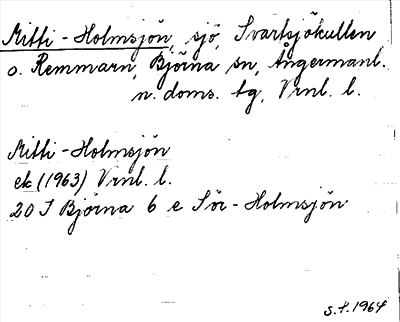 Mitti-Holmsjön, sjö, Svartsjökullen
o. Remmarn, Björna sn, Ångermanl.
n. doms. tg, Vrnl. l.
Mitti-Holmsjön
ek (1963) Vrnl. l.
20 I Björna 6 e Sör-Holmsjön
S.F. 1964